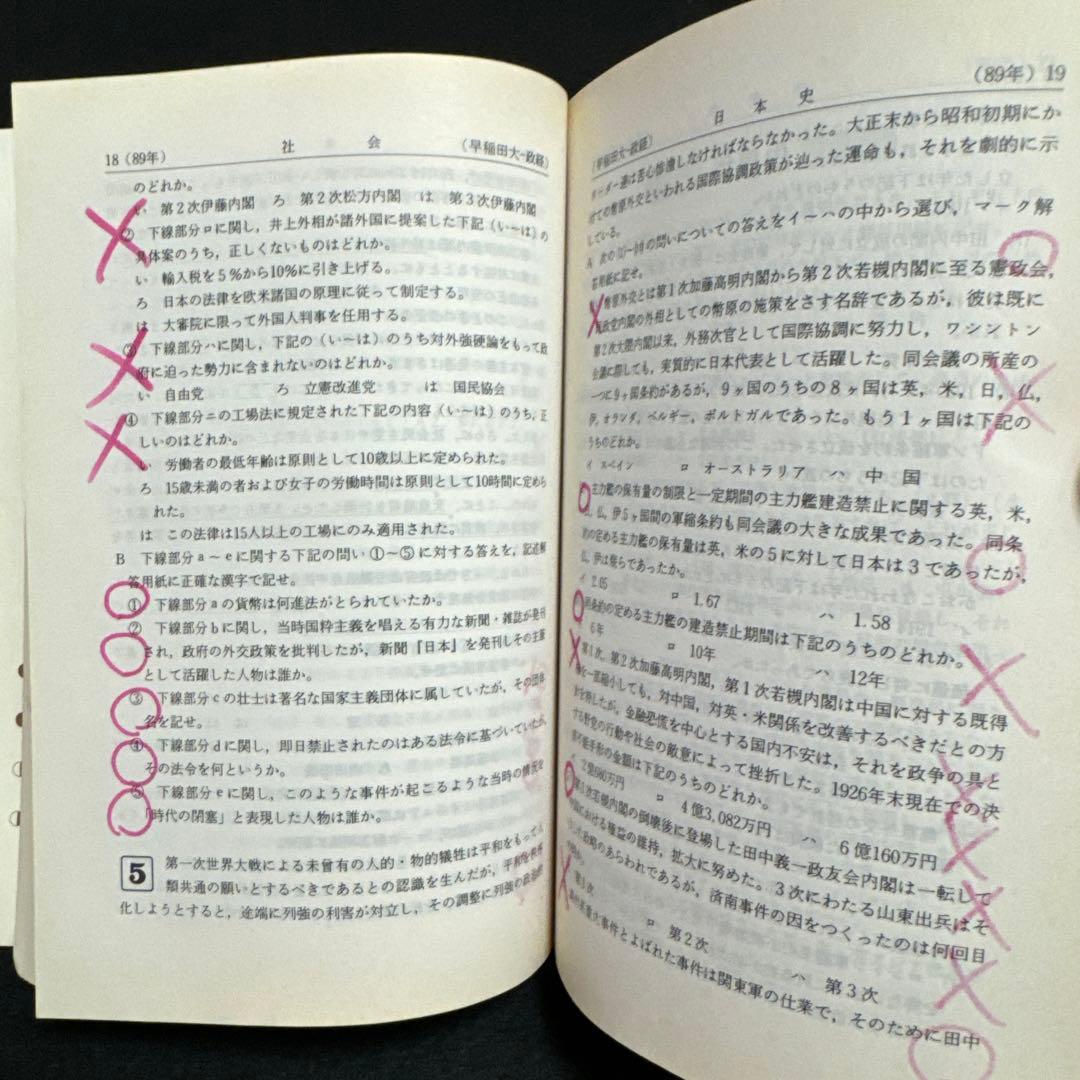 18（89年） 社 会 （早稲田大－政経）
のどれか。
い 第2次伊藤内閣 ろ 第2次松方内閣 は 第3次伊藤内閣
② 下線部分ロに関し，井上外相が諸外国に提案した下記（い～は）の
具体案のうち，正しくないものはどれか。
い 輸入税を5％から10％に引き上げる。
ろ 日本の法律を欧米諸国の原理に従って制定する。
は 大審院に限って外国人判事を任用する。
③ 下線部分ハに関し，下記の（い～は）のうち対外強硬論をもって政
府に迫った勢力に含まれないのはどれか。
い 自由党 ろ 立憲改進党 は 国民協会
④ 下線部分ニの工場法に規定された下記の内容（い～は）のうち，正
しいのはどれか。
い 労働者の最低年齢は原則として10歳以上に定められた。
ろ 15歳未満の者および女子の労働時間は原則として10時間に定めら
れた。
は この法律は15人以上の工場にのみ適用された。
B 下線部分a～eに関する下記の問い①～⑤に対する答えを，記述解
答用紙に正確な漢字で記せ。
① 下線部分aの貨幣は何進法がとられていたか。
② 下線部分bに関し，当時国粋主義を唱える有力な新聞・雑誌が発刊
され，政府の外交政策を批判したが，新聞『日本』を発刊しその主筆
として活躍した人物は誰か。
③ 下線部分cの壮士は著名な国家主義団体に属していたが，その団体
名を記せ。
④ 下線部分dに関し，即日禁止されたのはある法令に基づいていたが，
その法令を何というか。
⑤ 下線部分eに関し，このような事件が起こるような当時の情況を
「時代の閉塞」と表現した人物は誰か。
5 第一次世界大戦による未曾有の人的・物的犠牲は平和をもって人
類共通の願いとするべきであるとの認識を生んだが，平和を
化しようとすると，途端に列強の利害が対立し，その調整に列強の政治的
（早稲田大－政経） 日 本 史 （89年）19
リーダー達は苦心惨憺しなければならなかった。大正末から昭和初期にか
けての幣原外交といわれる国際協調政策が辿った運命も，それを劇的に示
している。
A 次の の問いについての答えをイ～ハの中から選び，マーク解
答用紙に記せ。
幣原外交とは第1次加藤高明内閣から第2次若槻内閣に至る憲政会，
民政党内閣の外相としての幣原の施策をさす名辞であるが，彼は既に
第2次大隈内閣以来，外務次官として国際協調に努力し，ワシントン
会議に際しても，実質的に日本代表として活躍した。同会議の所産の
一つに9ヶ国条約があるが，9ヶ国のうちの8ヶ国は英，米，日，仏，
伊，オランダ，ベルギー，ポルトガルであった。もう1ヶ国は下記の
うちのどれか。
イ スペイン ロ オーストラリア ハ 中国
主力艦の保有量の制限と一定期間の主力艦建造禁止に関する英，米，
日，仏，伊5ヶ国間の軍縮条約も同会議の大きな成果であった。同条
約の定める主力艦の保有量は英，米の5に対して日本は3であったが，
仏，伊は幾らであったか。
イ 2.05 ロ 1.67 ハ 1.58
同条約の定める主力艦の建造禁止期間は下記のうちのどれか。
6年 ロ 10年 ハ 12年
第1次，第2次加藤高明内閣，第1次若槻内閣は中国に対する既得
権を一部縮小しても，対中国，対英・米関係を改善するべきだとの方
針を持したが，金融恐慌を中心とする国内不安は，それを政争の具と
する野党の行動や社会の敵意によって挫折した。1926年末現在での決
済不能手形の金額は下記のうちのどれか。
2億680万円 ロ 4億3,082万円 ハ 6億160万円
第1次若槻内閣の倒壊後に登場した田中義一政友会内閣は一転して
における権益の維持，拡大に努めた。3次にわたる山東出兵はそ
政略のあらわれであるが，済南事件の因をつくったのは何回目
第1次 ロ 第2次 ハ 第3次
重大事件とよばれた事件は関東軍の仕業で，そのために田中